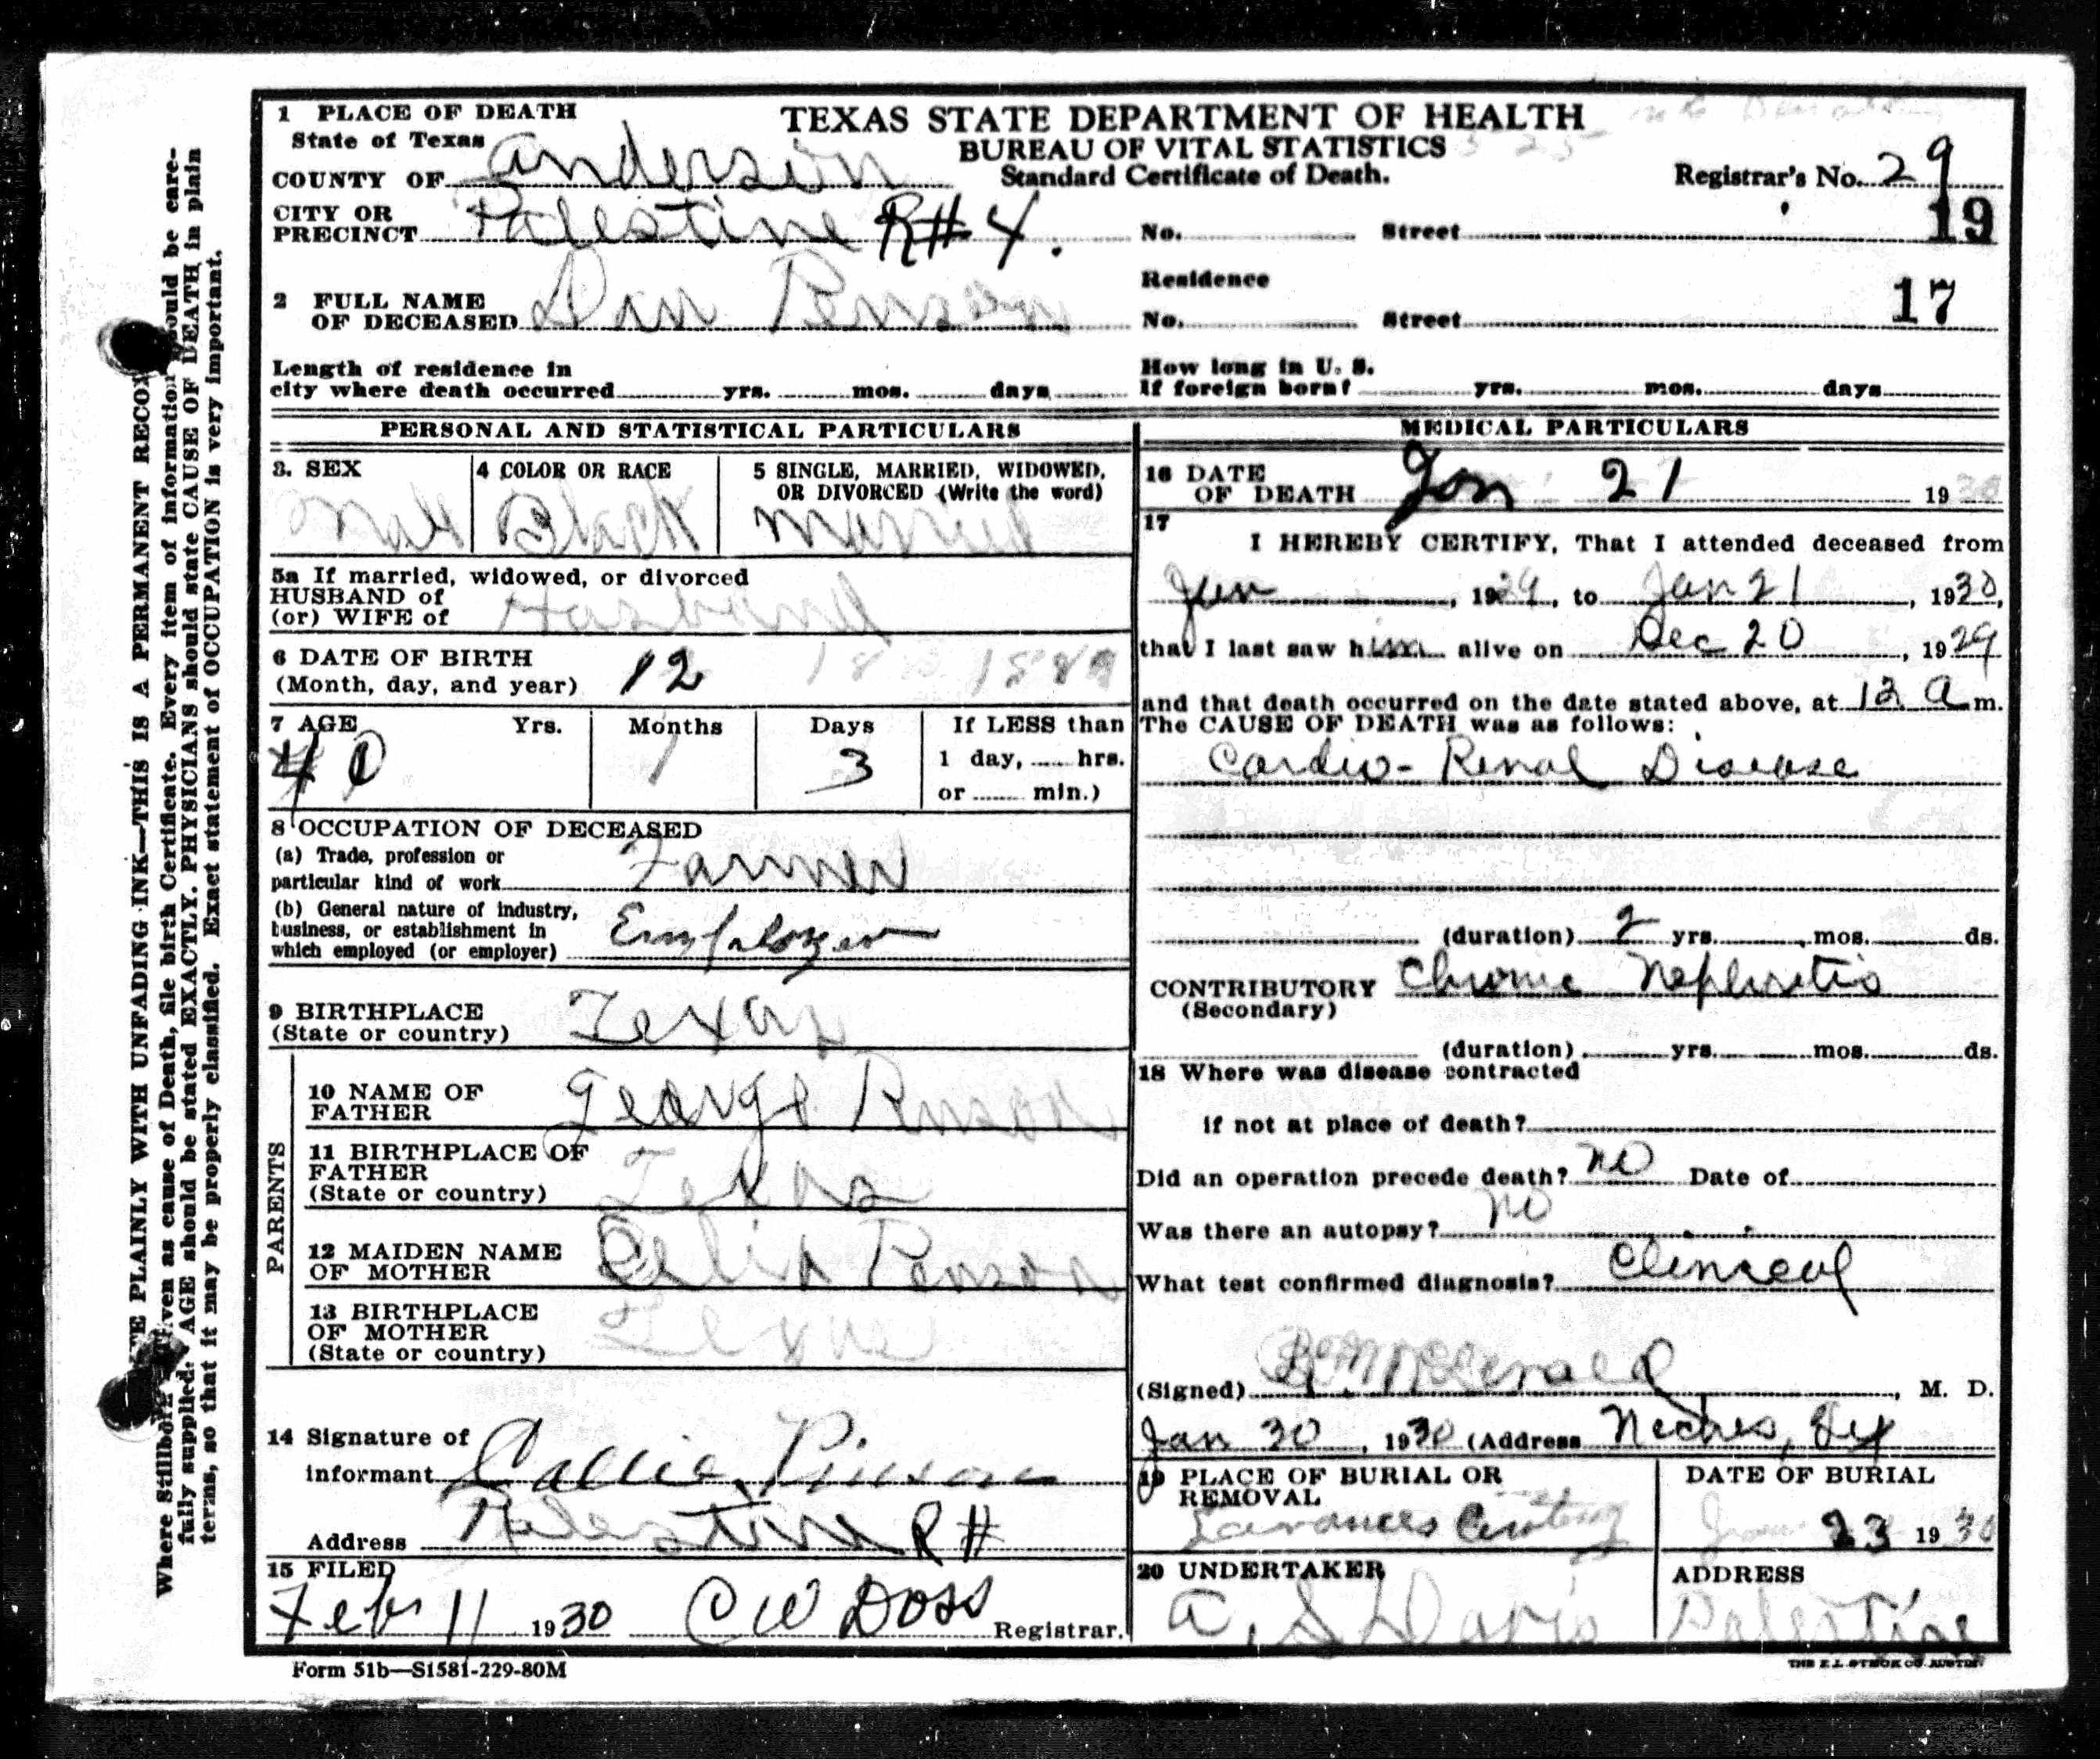 TEXAS STATE DEPARTMENT OF HEALTH
BUREAU OF VITAL STATISTICS
Standard Certificate of Death.
Registrar's No. 29
19
1 PLACE OF DEATH
State of Texas
COUNTY OF Anderson
CITY OR PRECINCT Palestine R# 4.
No. Street
2 FULL NAME OF DECEASED Dan Penson
Residence
No. Street
17
Length of residence in
city where death occurred yrs. mos. days
How long in U. S.
If foreign born? yrs. mos. days
PERSONAL AND STATISTICAL PARTICULARS
3. SEX
Male
4 COLOR OR RACE
Black
5 SINGLE, MARRIED, WIDOWED,
OR DIVORCED (Write the word)
Married
5a If married, widowed, or divorced
HUSBAND of
(or) WIFE of Husband
6 DATE OF BIRTH
(Month, day, and year) 12 18 1889
7 AGE Yrs. Months Days
40 1 3
If LESS than
1 day, hrs.
or min.)
8 OCCUPATION OF DECEASED
(a) Trade, profession or
particular kind of work Farmer
(b) General nature of industry,
business, or establishment in
which employed (or employer) Employer
9 BIRTHPLACE
(State or country) Texas
PARENTS
10 NAME OF
FATHER George Penson
11 BIRTHPLACE OF
FATHER
(State or country) Texas
12 MAIDEN NAME
OF MOTHER Celia Penson
13 BIRTHPLACE
OF MOTHER
(State or country) Texas
14 Signature of
informant Callie Pinson
Address Palestine R#
15 FILED
Feb 11 1930 C W Doss Registrar.
MEDICAL PARTICULARS
16 DATE
OF DEATH Jan 21 1930
17
I HEREBY CERTIFY, That I attended deceased from
Jun, 1929, to Jan 21, 1930,
that I last saw him alive on Dec 20, 1929
and that death occurred on the date stated above, at 12 a m.
The CAUSE OF DEATH was as follows:
Cardio-Renal Disease
(duration) 2 yrs. mos. ds.
CONTRIBUTORY Chronic Nephritis
(Secondary)
(duration) yrs. mos. ds.
18 Where was disease contracted
if not at place of death?
Did an operation precede death? no Date of
Was there an autopsy? no
What test confirmed diagnosis? Clinical
(Signed) McDonald, M. D.
Jan 30, 1930 (Address Neches, Tex
19 PLACE OF BURIAL OR
REMOVAL
DATE OF BURIAL
Jan 23 1930
20 UNDERTAKER
A. S. Davis
ADDRESS
Palestine
Form 51b—S1581-229-80M
THE E.L. STECK CO. AUSTIN
WRITE PLAINLY WITH UNFADING INK—THIS IS A PERMANENT RECORD
Where Stillborn given as cause of Death, file birth Certificate. Every item of information should be care-
fully supplied. AGE should be stated EXACTLY. PHYSICIANS should state CAUSE OF DEATH in plain
terms, so that it may be properly classified. Exact statement of OCCUPATION is very important.